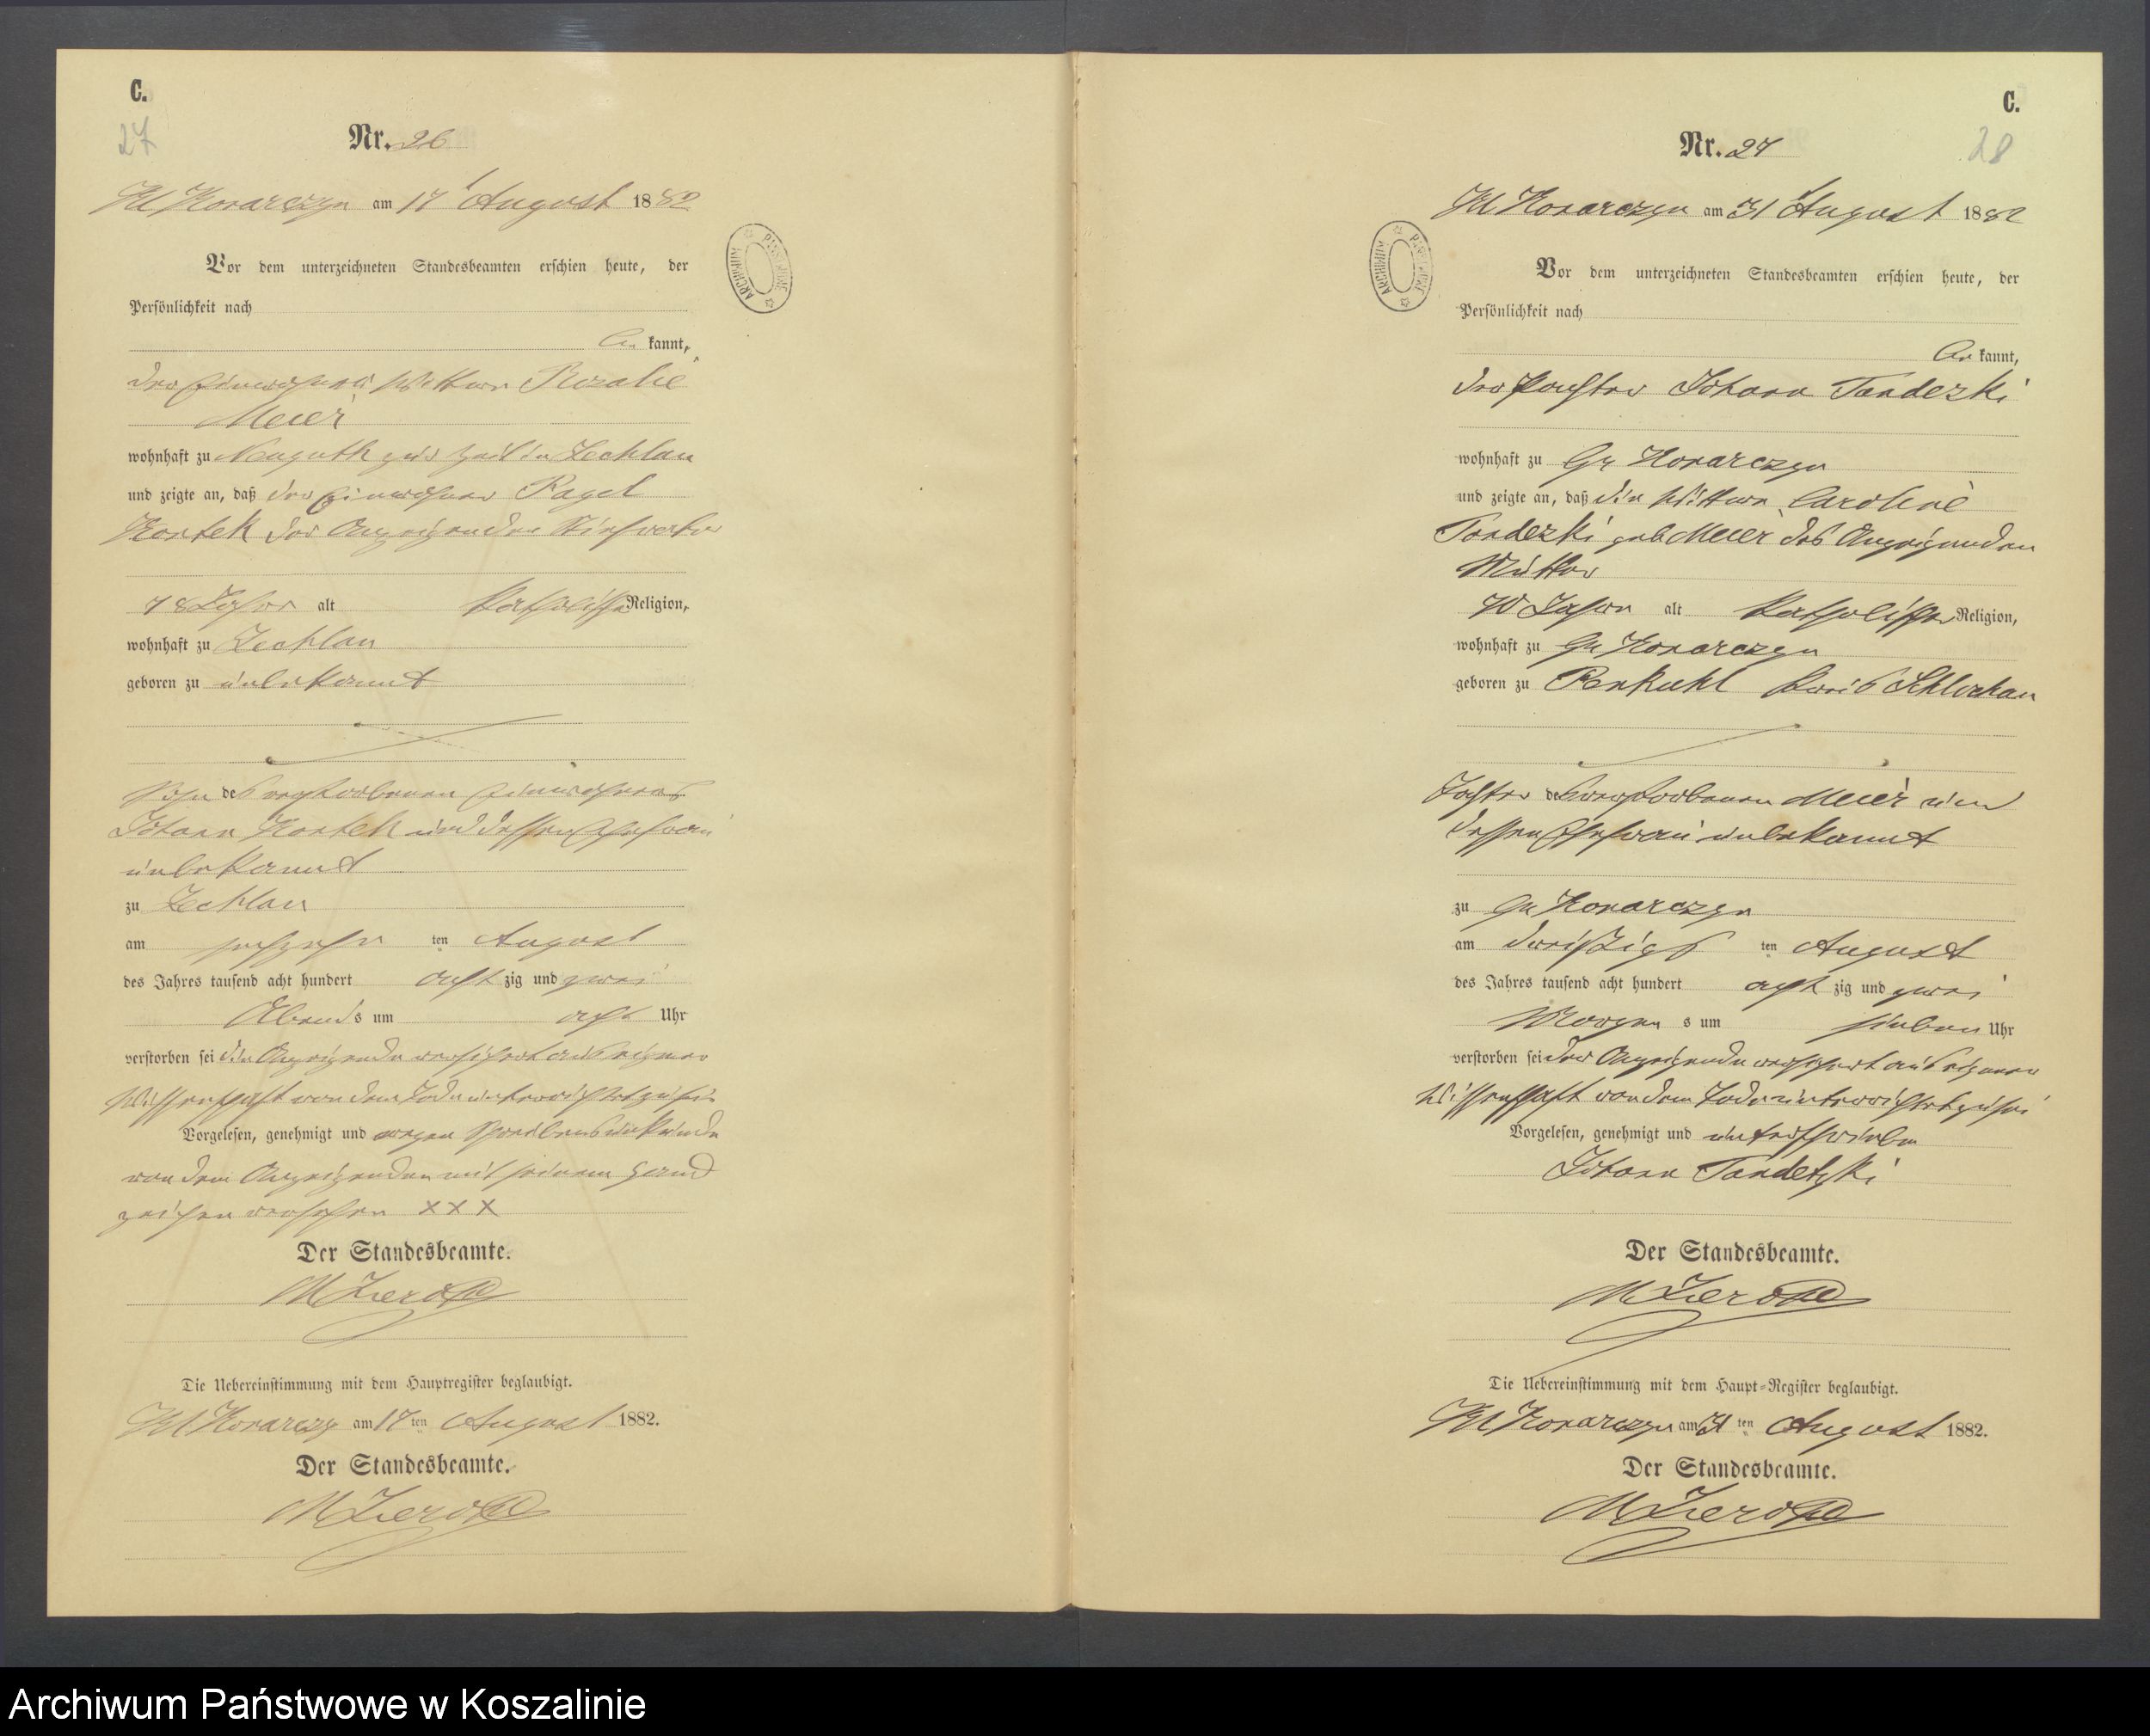 C.
27
Nr. 26
Kl Konarczyn am 17 August 1882
Vor dem unterzeichneten Standesbeamten erschien heute, der
Persönlichkeit nach
kannt,
Wittwe Rozalie
Meier
wohnhaft zu zur Zeit in Zechlau
und zeigte an, daß der Einwohner
der Anzeigenden Stiefvater
78 Jahr alt katholischer Religion,
wohnhaft zu Zechlau
geboren zu unbekannt
Sohn des verstorbenen Einwohners
Johann und dessen Ehefrau
unbekannt
zu Zechlau
am sechzehn ten August
des Jahres tausend acht hundert acht zig und zwei
Abends um acht Uhr
verstorben sei die Anzeigende versichert aus eigener
Wissenschaft von dem Tode unterrichtet zu sein
Vorgelesen, genehmigt und wegen Schreibensunkunde
von dem Anzeigenden mit seinem Hand
zeichen versehen XXX
Der Standesbeamte.
Die Uebereinstimmung mit dem Hauptregister beglaubigt.
Kl Konarczyn am 17 ten August 1882.
Der Standesbeamte.
C.
28
Nr. 27
Kl Konarczyn am 31 August 1882
Vor dem unterzeichneten Standesbeamten erschien heute, der
Persönlichkeit nach
kannt,
der Johann Tandezki
wohnhaft zu Gr Konarczyn
und zeigte an, daß die Wittwe Caroline
Tandezki geb Meier des Anzeigenden
Mutter
70 Jahr alt katholischer Religion,
wohnhaft zu Gr Konarczyn
geboren zu Penkuhl Kreis Schlochau
Tochter des verstorbenen Meier und
dessen Ehefrau unbekannt
zu Gr Konarczyn
am dreißigst ten August
des Jahres tausend acht hundert acht zig und zwei
Morgen s um sieben Uhr
verstorben sei der Anzeigende versichert aus eigener
Wissenschaft von dem Tode unterrichtet zu sein
Vorgelesen, genehmigt und unterschrieben
Johann Tandetzki
Der Standesbeamte.
Die Uebereinstimmung mit dem Haupt-Register beglaubigt.
Kl Konarczyn am 31 ten August 1882.
Der Standesbeamte.
Archiwum Państwowe w Koszalinie